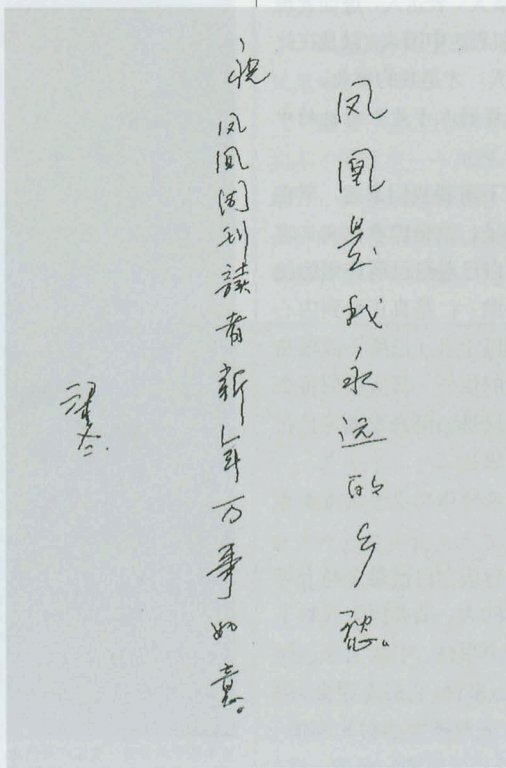 凤凰是我永远的乡愁。
祝凤凰周刊讀者新年万事如意。